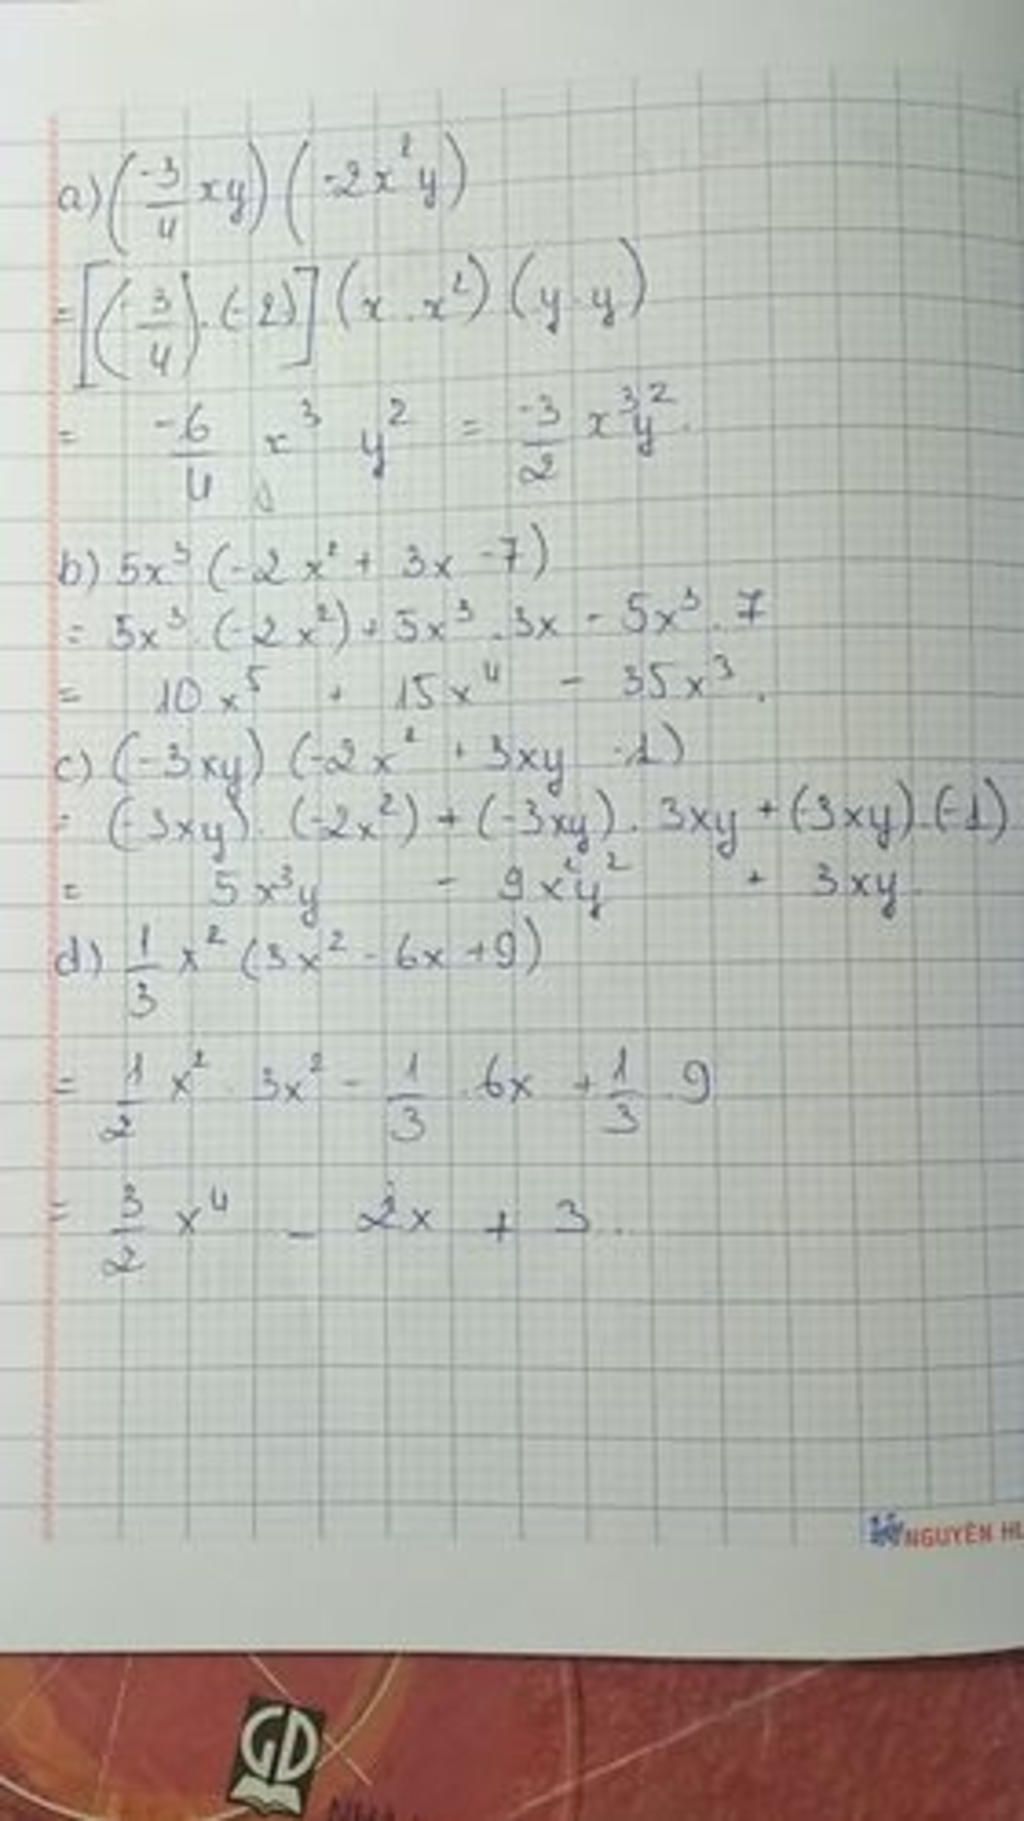 a) (-3/4 xy) (-2x²y)
= [(-3/4) . (-2)] (x . x²) (y . y)
= -6/4 x³ y² = -3/2 x³y².
b) 5x³ (-2x² + 3x - 7)
= 5x³ . (-2x²) + 5x³ . 3x - 5x³ . 7
= 10x⁵ + 15x⁴ - 35x³.
c) (-3xy) (-2x² + 3xy - 1)
= (-3xy) . (-2x²) + (-3xy) . 3xy + (-3xy) . (-1)
= 5x³y - 9x²y² + 3xy.
d) 1/3 x² (3x² - 6x + 9)
= 1/2 x² . 3x² - 1/3 . 6x + 1/3 . 9
= 3/2 x⁴ - 2x + 3.
NGUYÊN HU
GD